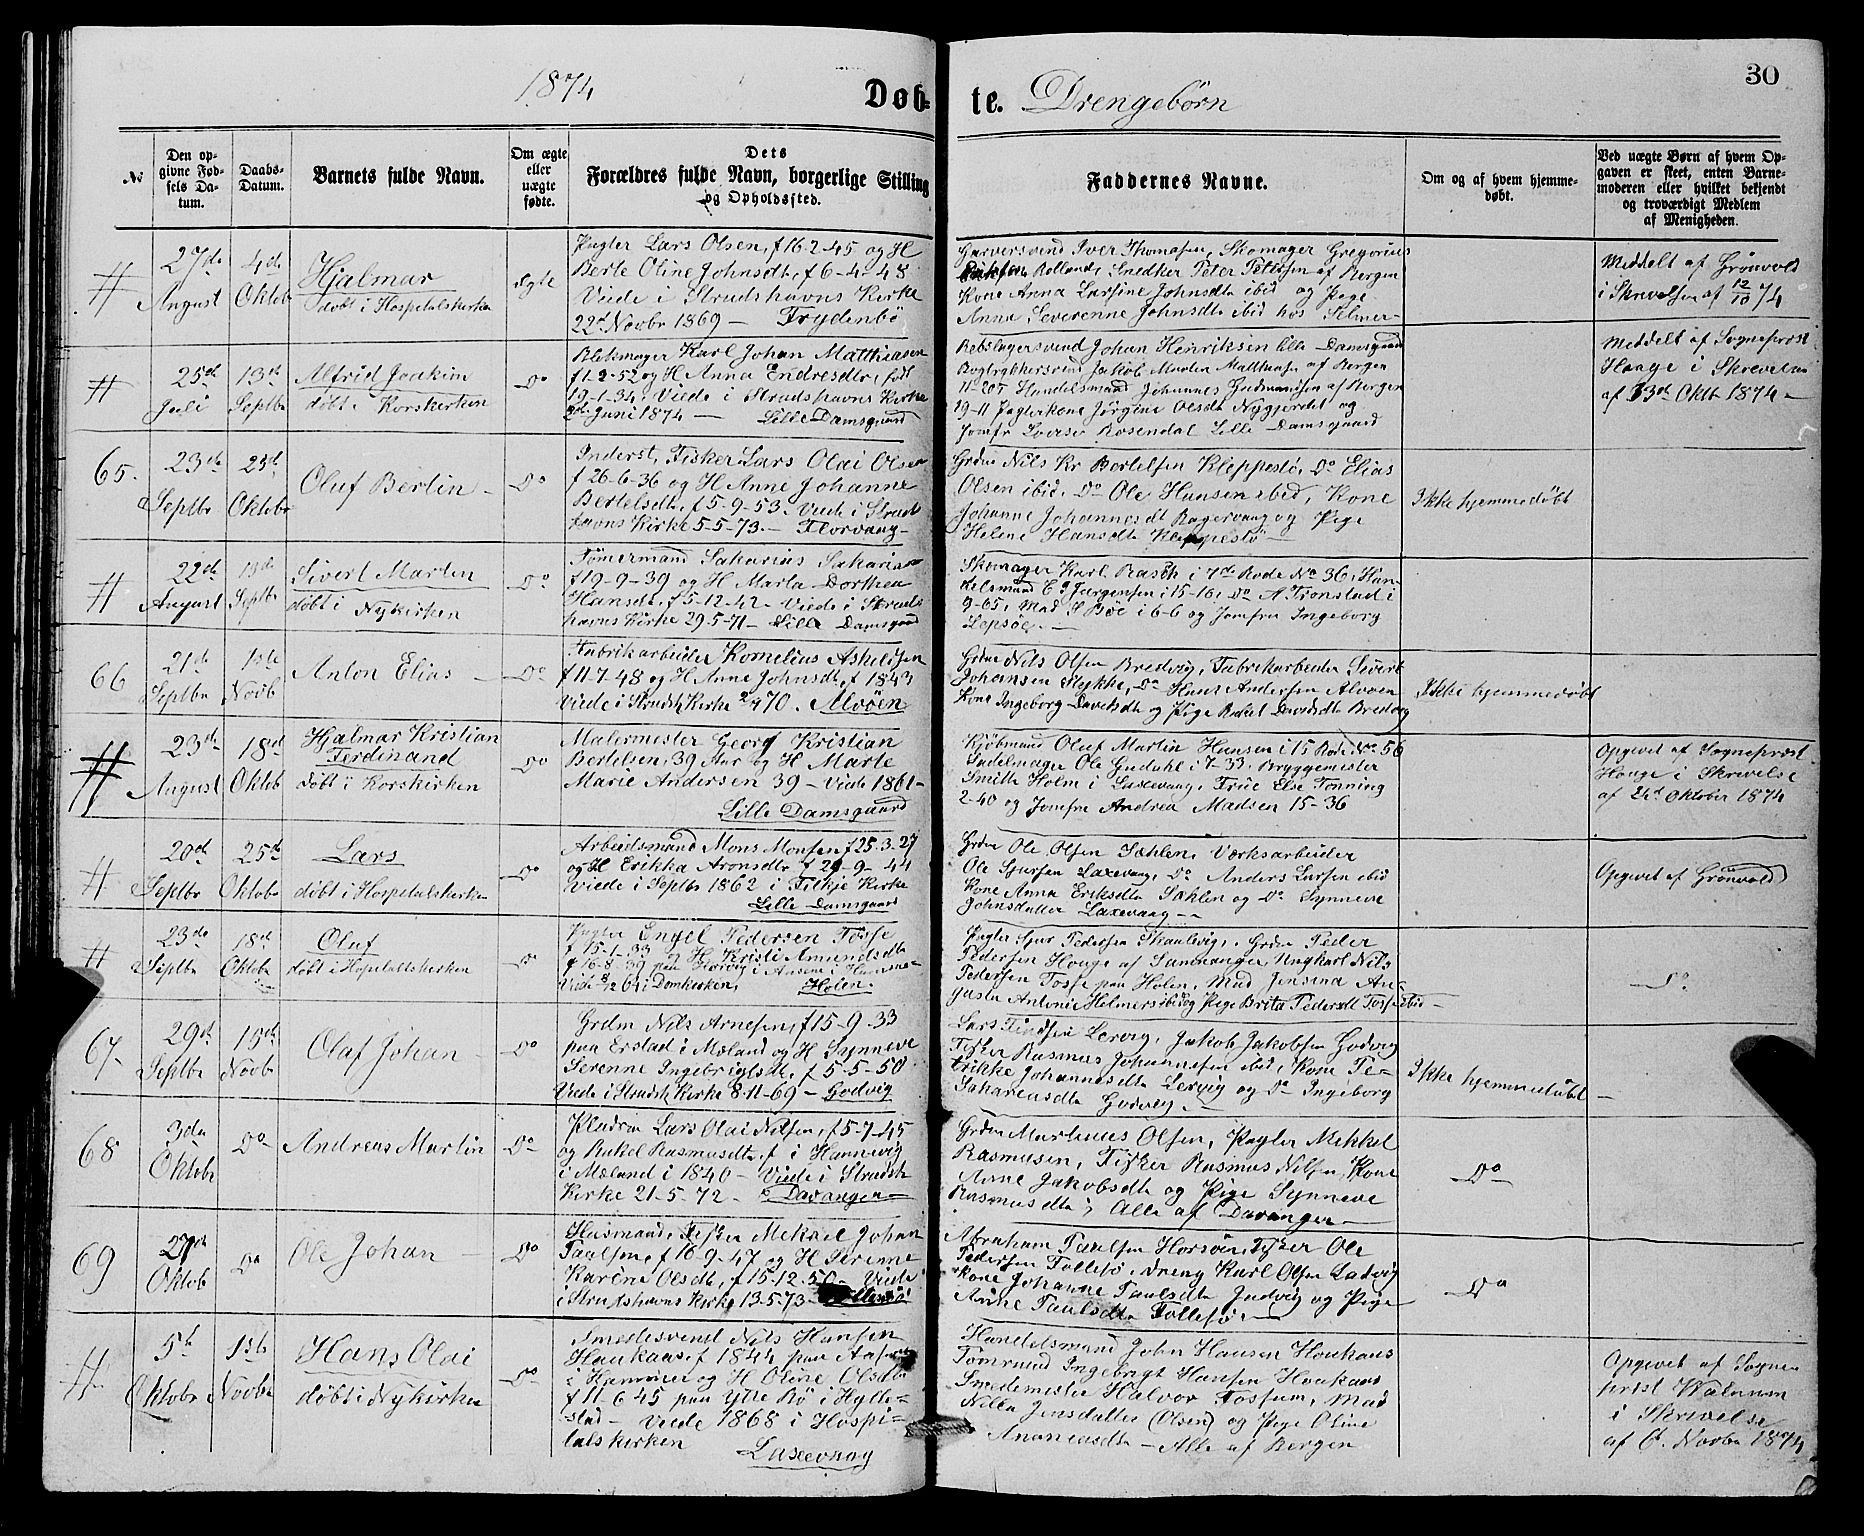 1874
Døb-
te. Drengebørn
30
№
Den op-
givne Fød-
sels Da-
tum.
Daabs-
Datum.
Barnets fulde Navn.
Om ægte
eller
uægte
fødte.
Dets
Forældres fulde Navn, borgerlige Stilling
og Opholdssted.
Faddernes Navne.
Om og af hvem hjemme-
døbt.
Ved uægte Børn af hvem Op-
gaven er skeet, enten Barne-
moderen eller hvilket bekjendt
og troværdigt Medlem
af Menigheden.
#
27de
August
4de
Oktob
Hjalmar
døbt i Hospitalskirken
ægte
Lars Olsen, f 16-2-45 og H
Berte Oline Johnsdt, f 6-4-48
Viede i Strudshavns Kirke
22d Novbr 1869 — Frydenbø
Garversvend Iver Thomasen, Skomager Gregorius
Rolland, Snedker Peter af Bergen
Kone Anna Larsine Johnsdt ibid og Pige
Anna Severenne Johnsdt ibid hos
Meddelt af Grönvold
i Skrevelse af 12/10 74
#
25de
Juli
13de
Septbr
Alfrid Joakim
døbt i Korskirken
Do
Blokmager Karl Johan Matthiasen
f 1-2-52 og H Anna Endresdtr, født
19-1-34, Viede i Strudshavns Kirke
Juni 1874 — Lille Damsgaard
Rebslagersvend Johan Henriksen Lille Damsgaard
Bogtrykkersvend Jakob Martin Matthiasen af Bergen
Handelsmand Johannes Gudmundsen af Bergen
19-11 Kone Jörgine Olsdt Nygjerdet og
Jomfr Lovise Rosendal Lille Damsgaard
Meddelt af Sogneprest
Houge i Skrevelse
af 13de Oktb 1874 —
65.
23de
Septbr
25de
Oktobr
Oluf Bertin
Do
Inderst, Fisker Lars Olai Olsen
f 26-6-36 og H Anne Johanne
Bertelsdt, f 5-9-53. Viede i Struds
havns Kirke 5-5-73. — Florvaag —
Grdm Nils Kr Bertelsen Kleppestø, Do Elias
Olsen ibid. Do Ole Hansen ibid, Kone
Johanne Johannesdt og Pige
Helene Hansdt Kleppestø
Ikke hjemmedøbt
#
22de
August
13de
Septbr
Sivert Martin
døbt i Nykirken
Do
Tömermand Sakarias Sakariasen
f 19-9-39 og H Marta Dorthea
Hansdt, f 5-12-42 — Viede i Struds
havns Kirke 29-5-71 — Lille Damsgaard
Skomager Karl Rasch i 7de Rode No 36, Han-
delsmand Jurgensen i 15-16, Do A Tronstad i
9-65, Mad S Böe i 6-6 og Jomfru Ingeborg
Lepsöe. —
66
21de
Septbr
1ste
Novb
Anton Elias
Do
Fabrikarbeider Kornelius Askeldsen
f 11-7-48 og H Anne Johnsdt, f 1843
Viede i Strudsh Kirke 70. Alvöen
Grdm Nils Olsen Bredvig, Fabrikarbeider Sivert
Johansen Mykke, Do Hans Andersen Alvöen
Kone Ingeborg Davidsdt og Pige Rakel Davidsdt Bredvig
Ikke hjemmedøbt
#
23de
August
18d
Oktob
Hjalmar Kristian
Ferdinand
døbt i Korskirken
Do
Malermester Georg Kristian
Bertelsen, 39 Aar og H Marte
Marie Andersen 39 — Viede 1861 —
Lille Damsgaard
Kjöbmand Oluf Martin Hansen i 15 Rode No 56
Sadelmager Ole i 7-33. Bryggemester
Smith Holm i Laxevaag. Frue Else Tonning
2-40 og Jomfru Andrea Madsen 15-36
Opgivet af Sogneprest
Houge i Skrevelse
af 24d Oktober 1874
#
20d
Septbr
25d
Oktobr
Lars
døbt i Hospitalskirken
Do
Arbeidsmand Mons Monsen f 25-3-27
og H Erikka Aronsdtr f 29-9-44
Viede i Septbr 1862 i Kirke
Lille Damsgaard
Grdm Ole Olsen Sælen, Værksarbeider
Ole Sjursen Laxevaag, Do Anders Larsen ibid
Kone Anna Eriksdt Sælen og Do Synneve
Johnsdatter Laxevaag —
Opgivet af Grönvold
#
23de
Septbr
18d
Oktobr
Oluf
døbt i Hospitalskirken
Do
Engel Pedersen Fosse
f 15-1-33 og H Kristi Amundsdt
f 16-8-39
Viede 64 i Domkirken, Holen.
Sjur Pedersen Skaalevig, Grdm Peder
Pedersen Houge af Samnanger Ungkarl Nils
Pedersen Fosse paa Holen, Mad Jensina Au-
gusta Antonie Helmers ibid og Pige Brita Pedersdt Fosse ibid —
Do
67
29de
Septbr
15de
Novbr
Olaf Johan
Do
Grdm Nils Arnesen, f 15-9-33
paa Erstad i Mæland og H Synneve
Serenne Ingebrigtsdt, f 5-5-50
Viede i Strudsh Kirke 8-11-69 — Godvig
Lars Lervig, Jakob Jakobsen Godvig
Fisker Rasmus Johannesen ibid, Kone Pe-
trikke Johannesdt Lervig og Do Ingeborg
Sakariasdt Godvig. —
Ikke hjemmedøbt
68
3die
Oktobr
Do
Andreas Martin
Do
Lars Olai Nilsen, f 5-7-45
og Rakel Rasmusdt, f i Hannevig
i Mæland i 1840 — Viede i Strudsh
Kirke 21-5-72 — Davanger —
Grdm Marhnus Olsen, Mikkel
Rasmusen, Fisker Rasmus Nilsen, Kone
Anne Jakobsdt og Pige Synneve
Rasmusdt, Alle af Davanger —
Do
69
27de
Oktob
Do
Ole Johan
Do
Husmand, Fisker Mikael Johan
Paulsen, f 16-9-47 og H Serine
Karine Olsdt, f 15-12-50 — Viede
i Strudshavns Kirke 13-5-73
Abraham Paulsen Horsöen, Fisker Ole
Pedersen Follesö, Dreng Karl Olsen Ladvig
Kone Johanne Paulsdt og Pige
Anne Paulsdt Follesö —
Do
#
5te
Oktobr
1ste
Novbr
Hans Olai
døbt i Nykirken
Do
Smedesvend Nils Hansen
Haukaas, f 1844 paa
i og H Oline Olsdt
f 11-6-45 paa Ytre Bö i Hylle-
stad — Viede 1868 i Hospi-
talskirken
Laxevaag
Handelsmand John Hansen Houkaas
Tömrmnd Ingebrigt Hansen Houkaas
Smedemester Halvor Fossum, Mad
Nilla Jensdatter (Olsen) og Pige Oline
Ananiasdt — Alle af Bergen
Opgivet af Sogne
prest Walnum
i Skrevelse
af 6. Novbr 1874